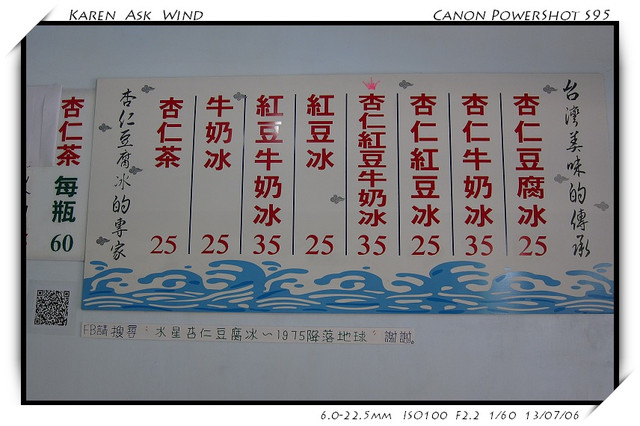 Karen Ask Wind
Canon PowerShot S95
台灣美味的傳承
杏仁豆腐冰 25
杏仁牛奶冰 35
杏仁紅豆冰 25
杏仁紅豆牛奶冰 35
紅豆冰 25
紅豆牛奶冰 35
牛奶冰 25
杏仁茶 25
杏仁豆腐冰的專家
杏仁茶 每瓶 60
FB請搜尋：水星杏仁豆腐冰～1975降落地球：謝謝。
6.0-22.5mm ISO100 F2.2 1/60 13/07/06